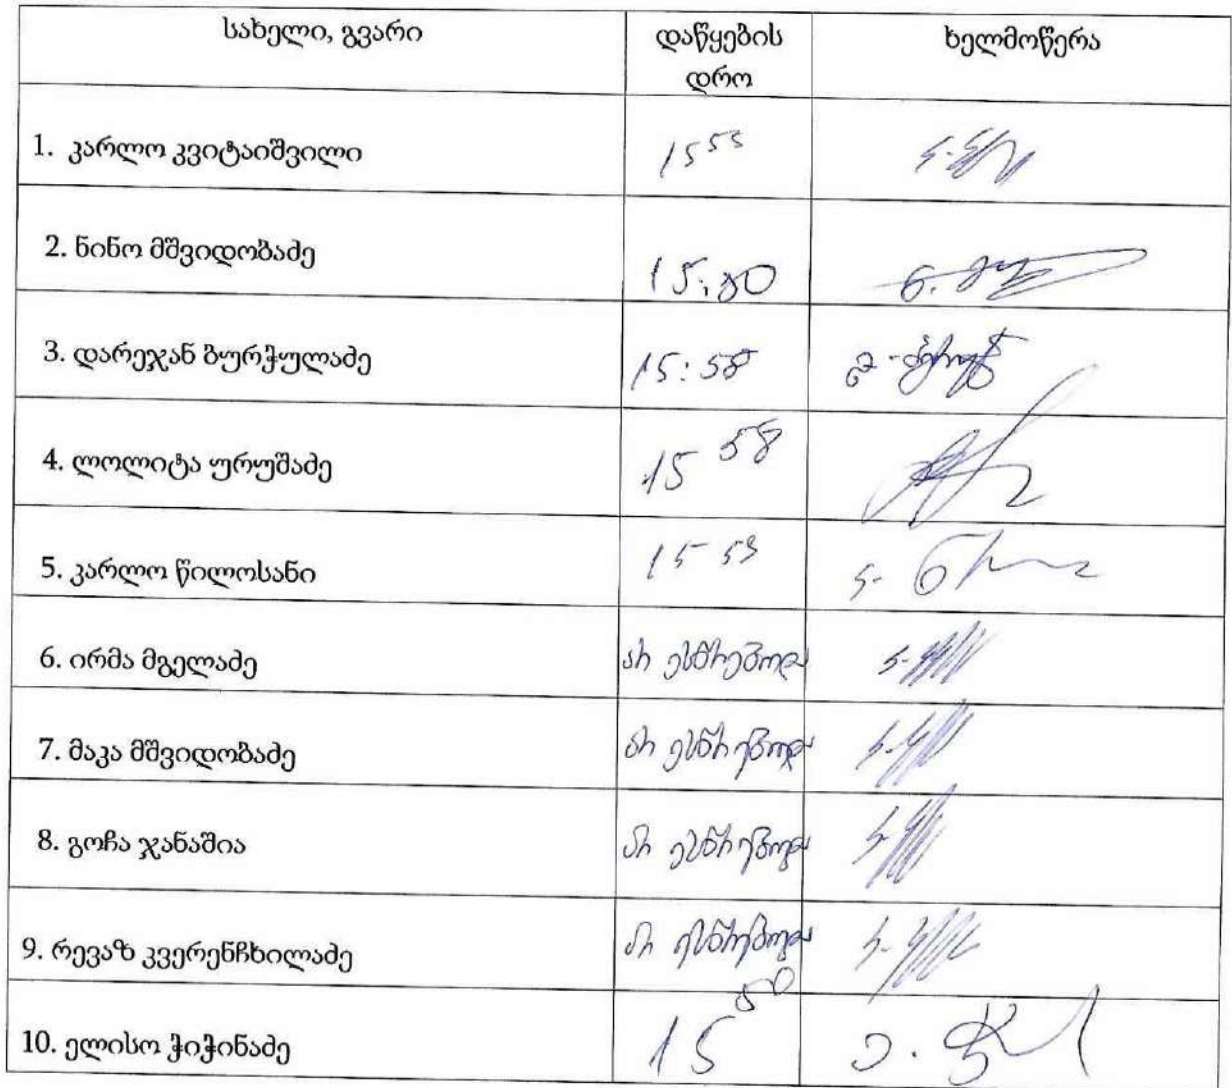 სახელი, გვარი
დაწყების
დრო
ხელმოწერა
1. კარლო კვიტაიშვილი 15 55
2. ნინო მშვიდობაძე
3. დარეჯან ბურჭულაძე 15:58
4. ლოლიტა ურუშაძე 15 58
5. კარლო წილოსანი 15 59
6. ირმა მგელაძე არ ესწრებოდა
7. მაკა მშვიდობაძე არ ესწრებოდა
8. გოჩა ჯანაშია არ ესწრებოდა
9. რევაზ კვერენჩხილაძე არ ესწრებოდა
10. ელისო ჭიჭინაძე 15 50